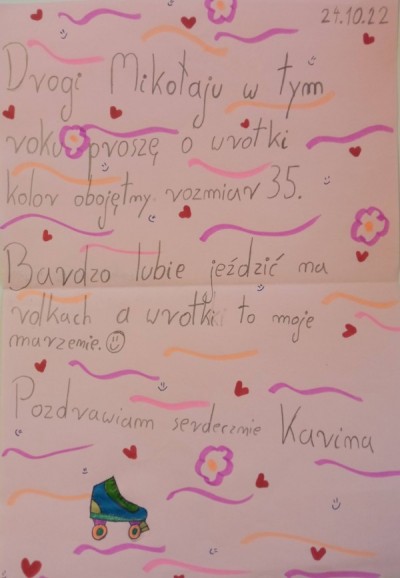 24.10.22
Drogi Mikołaju w tym
roku proszę o wrotki
kolor obojętny rozmiar 35.
Bardzo lubie jeździć na
rolkach a wrotki to moje
marzenie.
Pozdrawiam serdecznie Karina